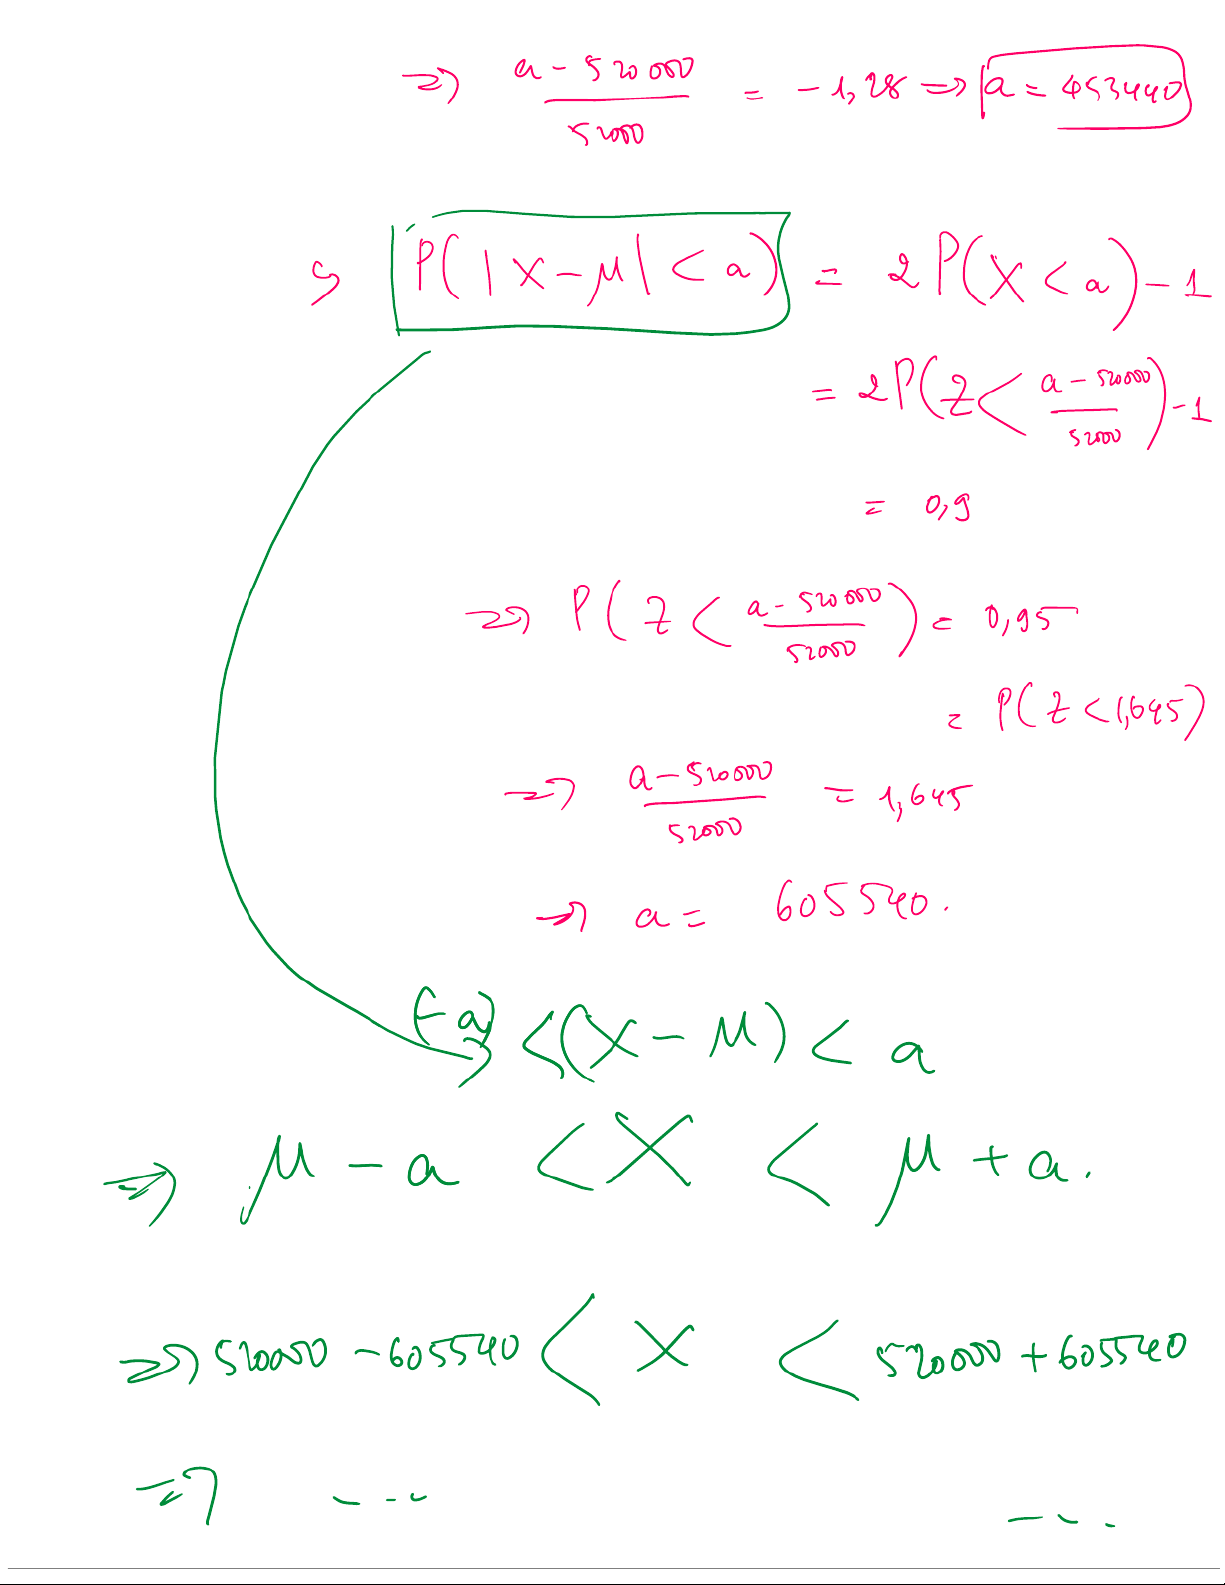 ⇒ (a − 520000)/52000 = −1,28 ⇒ a = 453440
5 P(|X − μ| < a) = 2P(X < a) − 1
= 2P(Z < (a − 520000)/52000) − 1
= 0,9
⇒ P(Z < (a − 520000)/52000) = 0,95
= P(Z < 1,645)
⇒ (a − 520000)/52000 = 1,645
⇒ a = 605540.
(−a) < (X − μ) < a
⇒ μ − a < X < μ + a.
⇒ 520000 − 605540 < X < 520000 + 605540
⇒ --- ---